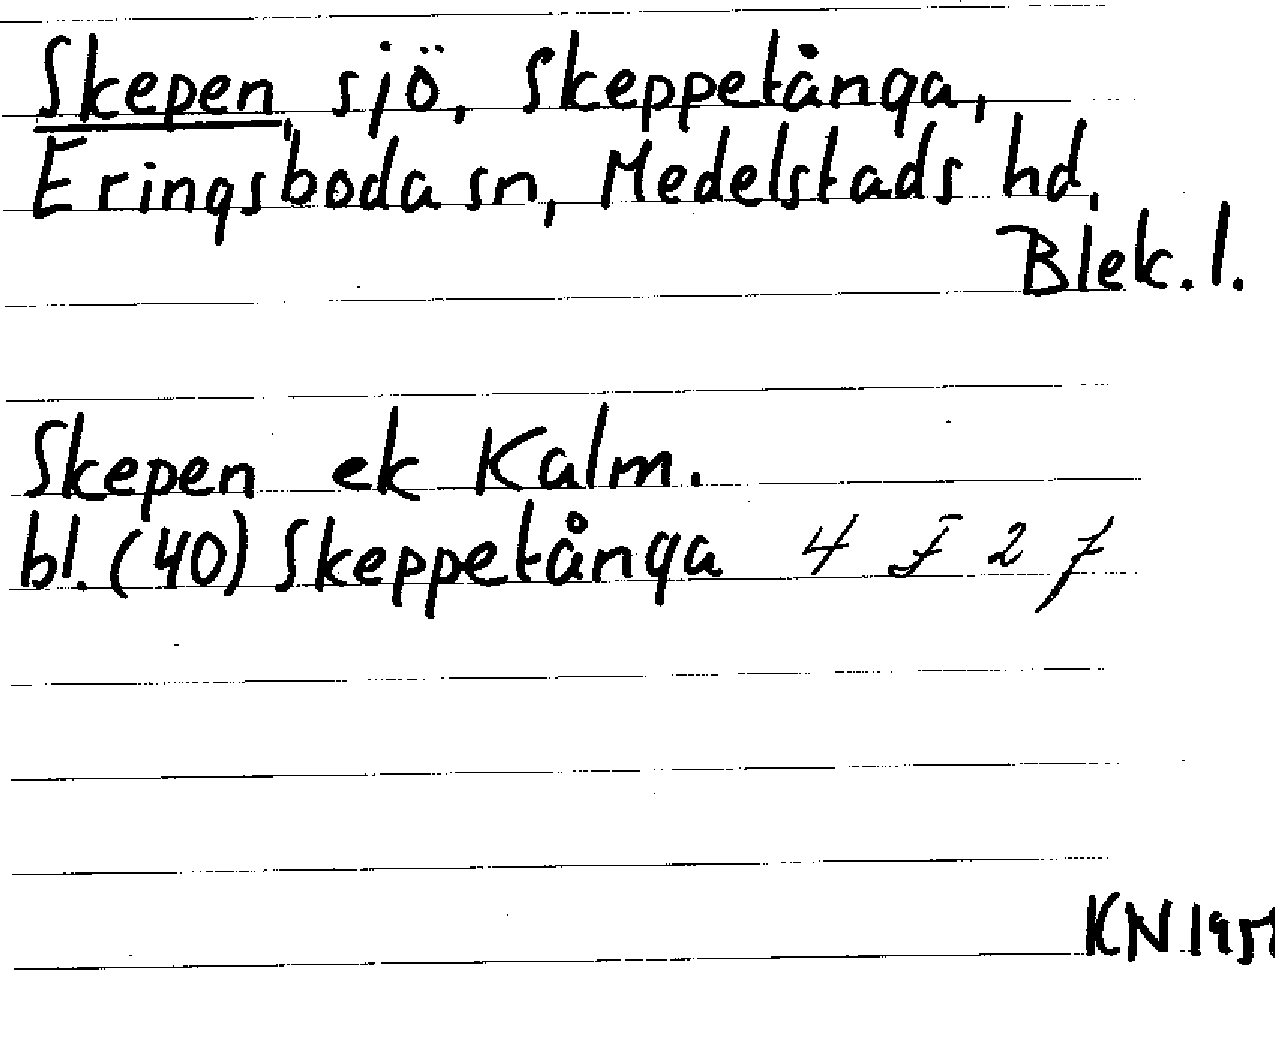 Skepen, sjö, Skeppetånga,
Eringsboda sn, Medelstads hd,
Blek. l.
Skepen ek Kalm.
bl. (40) Skeppetånga 4 F 2 f
KN 1951